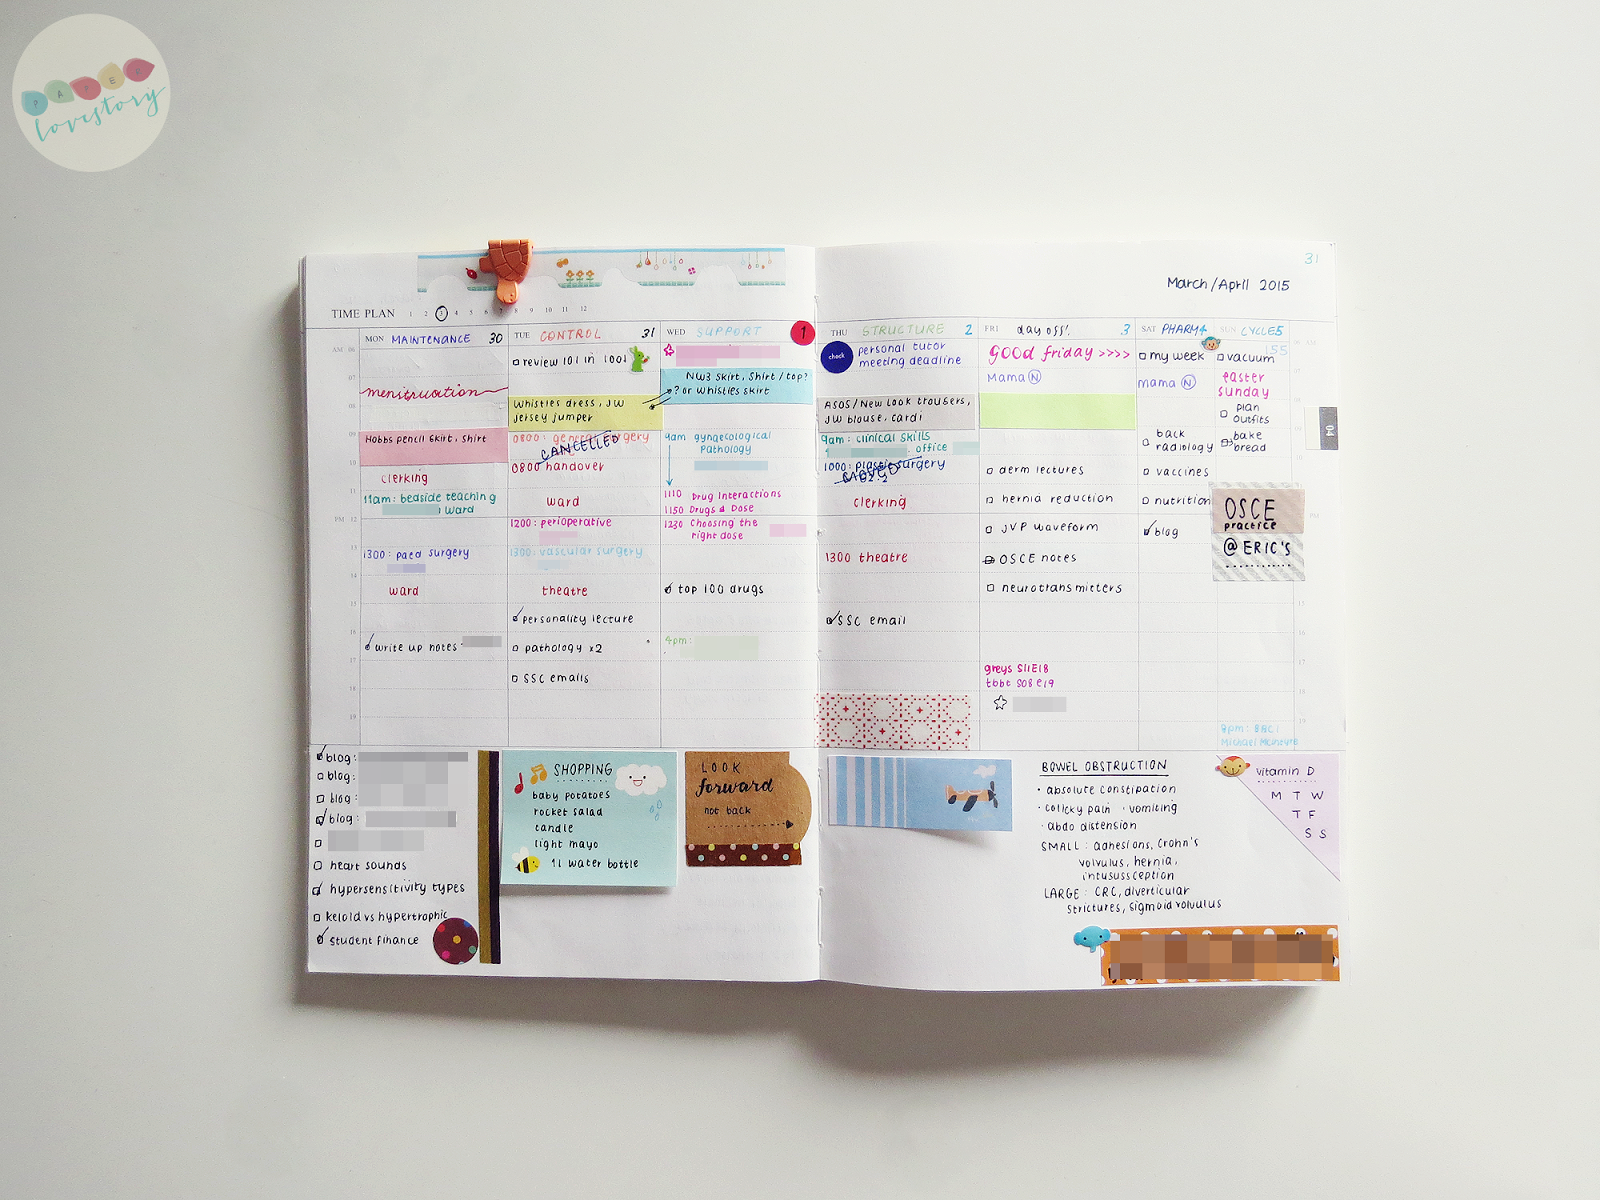 PAPER
lovestory
31
March/April 2015
TIME PLAN 1 2 3 4 5 6 7 8 9 10 11 12
MON MAINTENANCE 30
menstruation
Hobbs pencil skirt, shirt
clerking
11am: bedside teaching
ward
1300: paed surgery
ward
write up notes
TUE CONTROL 31
review 101 in 1001
Whistles dress, JW
jersey jumper
0800: general surgery
CANCELLED
0800 handover
ward
1200: perioperative
1300: vascular surgery
theatre
personality lecture
pathology x2
SSC emails
WED SUPPORT 1
NW3 skirt, shirt / top?
? or whistles skirt
9am gynaecological
pathology
1110 Drug Interactions
1150 Drugs & Dose
1230 Choosing the
right dose
top 100 drugs
4pm:
THU STRUCTURE 2
check
personal tutor
meeting deadline
ASOS/New Look trousers,
JW blouse, cardi
9am: clinical skills
office
1000: plastic surgery
MOVED
clerking
1300 theatre
SSC email
FRI day off! 3
good friday >>>>
Mama N
derm lectures
hernia reduction
JVP waveform
OSCE notes
neurotransmitters
greys S11E18
tbbt S08E19
SAT PHARM 4
my week
mama N
back
radiology
vaccines
nutrition
blog
SUN CYCLE 5
155
vacuum
easter
sunday
plan
outfits
bake
bread
OSCE
practice
@ ERIC'S
9pm: BBC1
Michael McIntyre
04
blog:
blog:
blog:
blog:
heart sounds
hypersensitivity types
keloid vs hypertrophic
student finance
SHOPPING
baby potatoes
rocket salad
candle
light mayo
1L water bottle
LOOK
forward
not back
BOWEL OBSTRUCTION
· absolute constipation
· colicky pain · vomiting
· abdo distension
SMALL: adhesions, Crohn's
volvulus, hernia,
intussusception
LARGE: CRC, diverticular
strictures, sigmoid volvulus
vitamin D
M T W
T F
S S